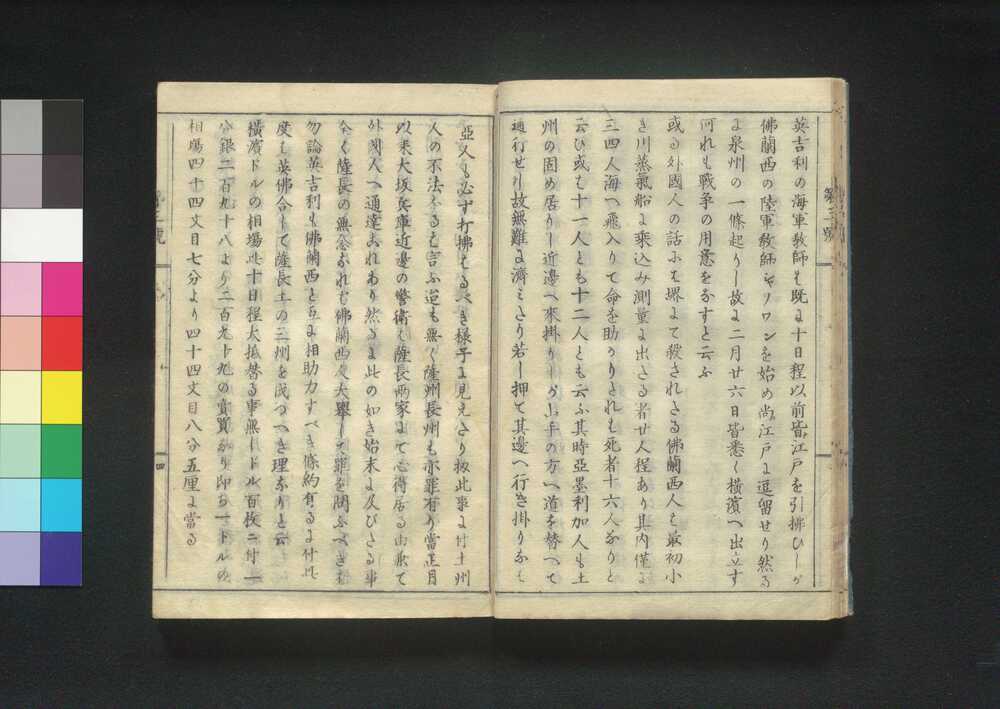 英吉利の海軍教師も既に十日程以前皆江戸を引拂ひしが
佛蘭西の陸軍教師シャノワンを始め尚江戸に逗留せり然る
に泉州の一條起りし故に二月廿六日皆悉く横濱へ出立す
何れも戰争の用意をなすと云ふ
或る外國人の話にも堺にて殺されたる佛蘭西人も最初小
き川蒸氣船に乗込み測量に出たる者廿人程あり其内僅に
三四人海へ飛入りて命を助かりたれも死者十六人なりと
云ひ或も十一人とも十二人とも云ふ其時亞墨利加人も土
州の固め居りし近邊へ來掛りしが山手の方へ道を替へて
通行せし故無難に濟みたり若し押て其邊へ行き掛りなも
第三號
亞人も必ず打拂もるべき様子に見えたり扨此事に付土州
人の不法なるも言ふ迄も無く薩州長州も亦罪有り當正月
以來大坂兵庫近邊の警衛も薩長両家にて心得居る由兼て
外國人へ通達これあり然るに此の如き始末に及びたる事
全く薩長の無念なれも佛蘭西人大擧して罪を問ふべき
勿論英吉利も佛蘭西と互に相助力すべき條約有るに付此
度も英佛合して薩長土の三州を伐つべき理なりと云
横濱ドルの相場此十日程大抵替る事無しドル百枚ニ付一
分銀二百九十八より二百九十九の賣買なり即ち一ドルの
相場四十四文目七分より四十四文目八分五厘に當る
四